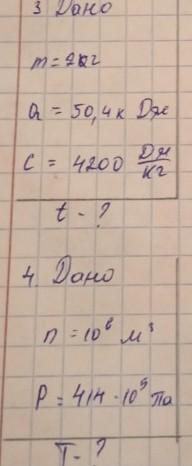 3 Дано
m = 2кг
Q = 50,4 к Дж
C = 4200 Дж/кг
t - ?
4. Дано
n = 10⁶ м³
P = 414 · 10⁵ Па
T - ?